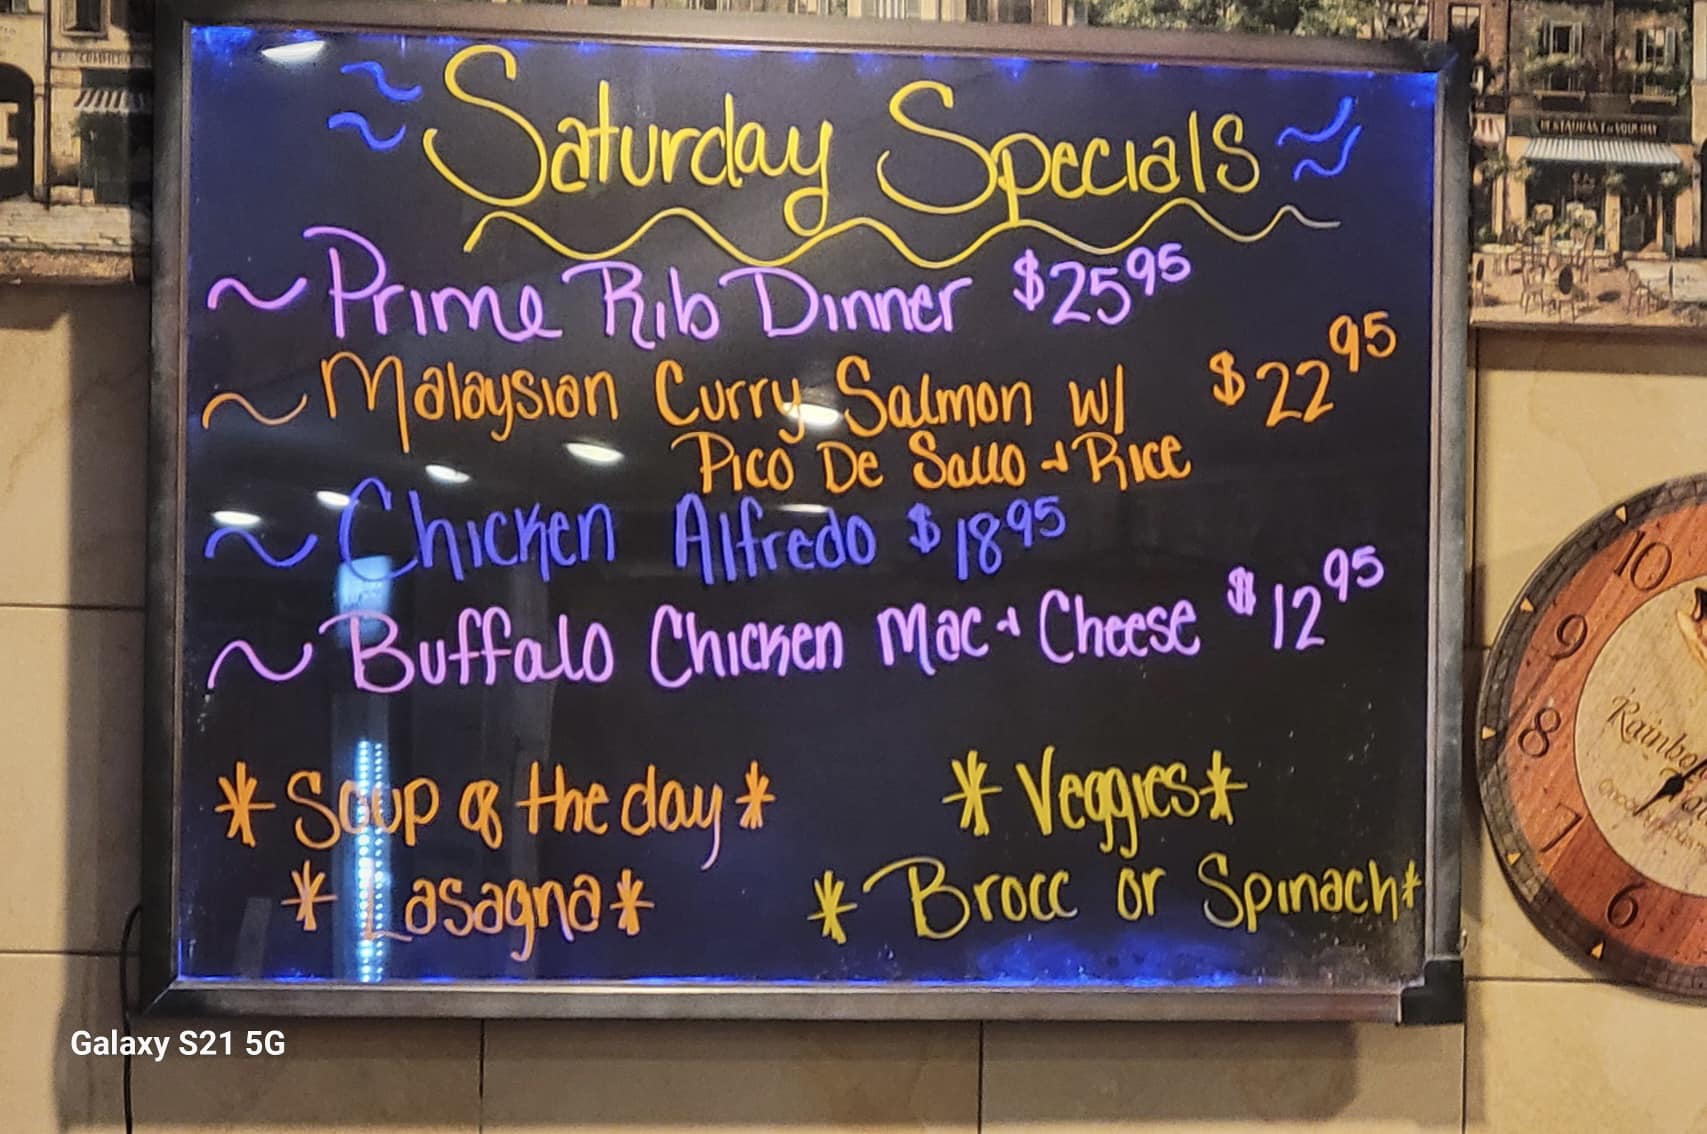 ~ Saturday Specials ~
~ Prime Rib Dinner $25.95
~ Malaysian Curry Salmon w/ $22.95
Pico De Sallo + Rice
~ Chicken Alfredo $18.95
~ Buffalo Chicken Mac + Cheese $12.95
* Soup of the day *
* Lasagna *
* Veggies *
* Brocc or Spinach *
10
9
8
7
6
Galaxy S21 5G